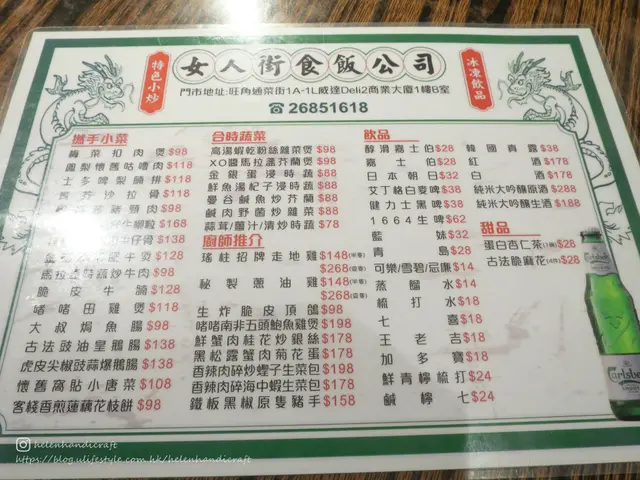 特色小炒
女人街食飯公司
冰凍飲品
門市地址:旺角通菜街1A-1L威達Deli2商業大廈1樓B室
☎26851618
撚手小菜
梅菜扣肉煲$98
鳳梨懷舊咕嚕肉$118
士多啤梨腩排$118
$118
$98
$168
$138
$128
馬拉盞時蔬炒牛肉$98
脆皮牛腩$128
啫啫田雞煲$118
大叔焗魚腸$98
古法豉油皇鵝腸$138
虎皮尖椒豉蒜爆鵝腸$138
懷舊窩貼小唐菜$108
客棧香煎蓮藕花枝餅$98
合時蔬菜
高湯蝦乾粉絲雜菜煲$98
XO醬馬拉盞芥蘭煲$98
金銀蛋浸時蔬$88
鮮魚湯杞子浸時蔬$88
曼谷鹹魚炒芥蘭$88
鹹肉野菌炒雜菜$88
蒜茸/薑汁/清炒時蔬$78
廚師推介
瑤柱招牌走地雞$148(半隻)
$268(壹隻)
秘製蔥油雞$148(半隻)
$268(壹隻)
生炸脆皮頂鴿$98
啫啫南非五頭鮑魚雞煲$198
鮮蟹肉桂花炒銀絲$178
黑松露蟹肉菊花蛋$178
香辣肉碎炒蟶子生菜包$198
香辣肉碎海中蝦生菜包$178
鐵板黑椒原隻豬手$158
飲品
醇滑嘉士伯$28
嘉士伯$28
日本朝日$32
艾丁格白麥啤$38
健力士黑啤$38
1664生啤$62
藍妹$32
青島$28
可樂/雪碧/忌廉$14
蒸餾水$14
梳打水$18
七喜$18
王老吉$18
加多寶$18
鮮青檸梳打$24
鹹檸七$24
韓國真露$38
紅酒$178
白酒$178
純米大吟釀原酒$288
純米大吟釀生酒$188
甜品
蛋白杏仁茶(1碗)$28
古法脆麻花(4件)$28
Carlsberg
helenhandicraft
https://blog.ulifestyle.com.hk/helenhandicraft